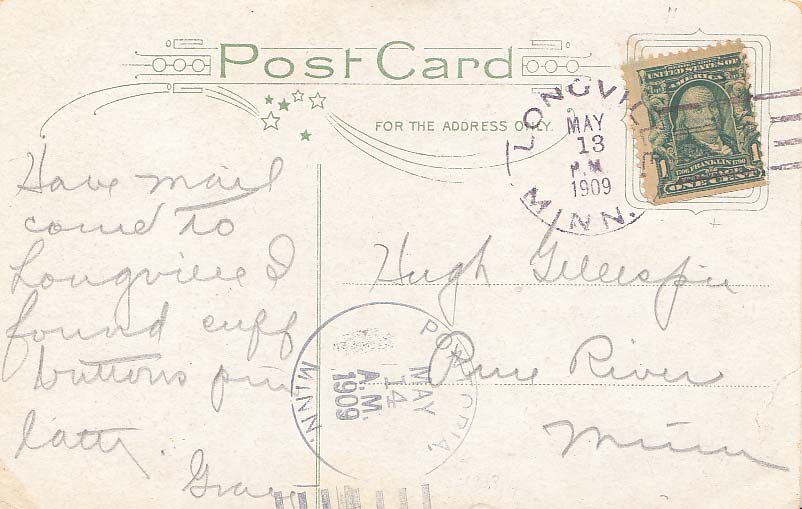 Post Card
FOR THE ADDRESS ONLY.
LONGVILLE
MAY
13
P.M.
1909
MINN.
UNITED STATES OF
AMERICA
1706 FRANKLIN 1790
1 1
ONE CENT
Have mail
come to
Longville I
found cuff
buttons pin
later
Hugh Gillespie
Pine River
Minn
MAY
14
A.M.
1909
MINN.